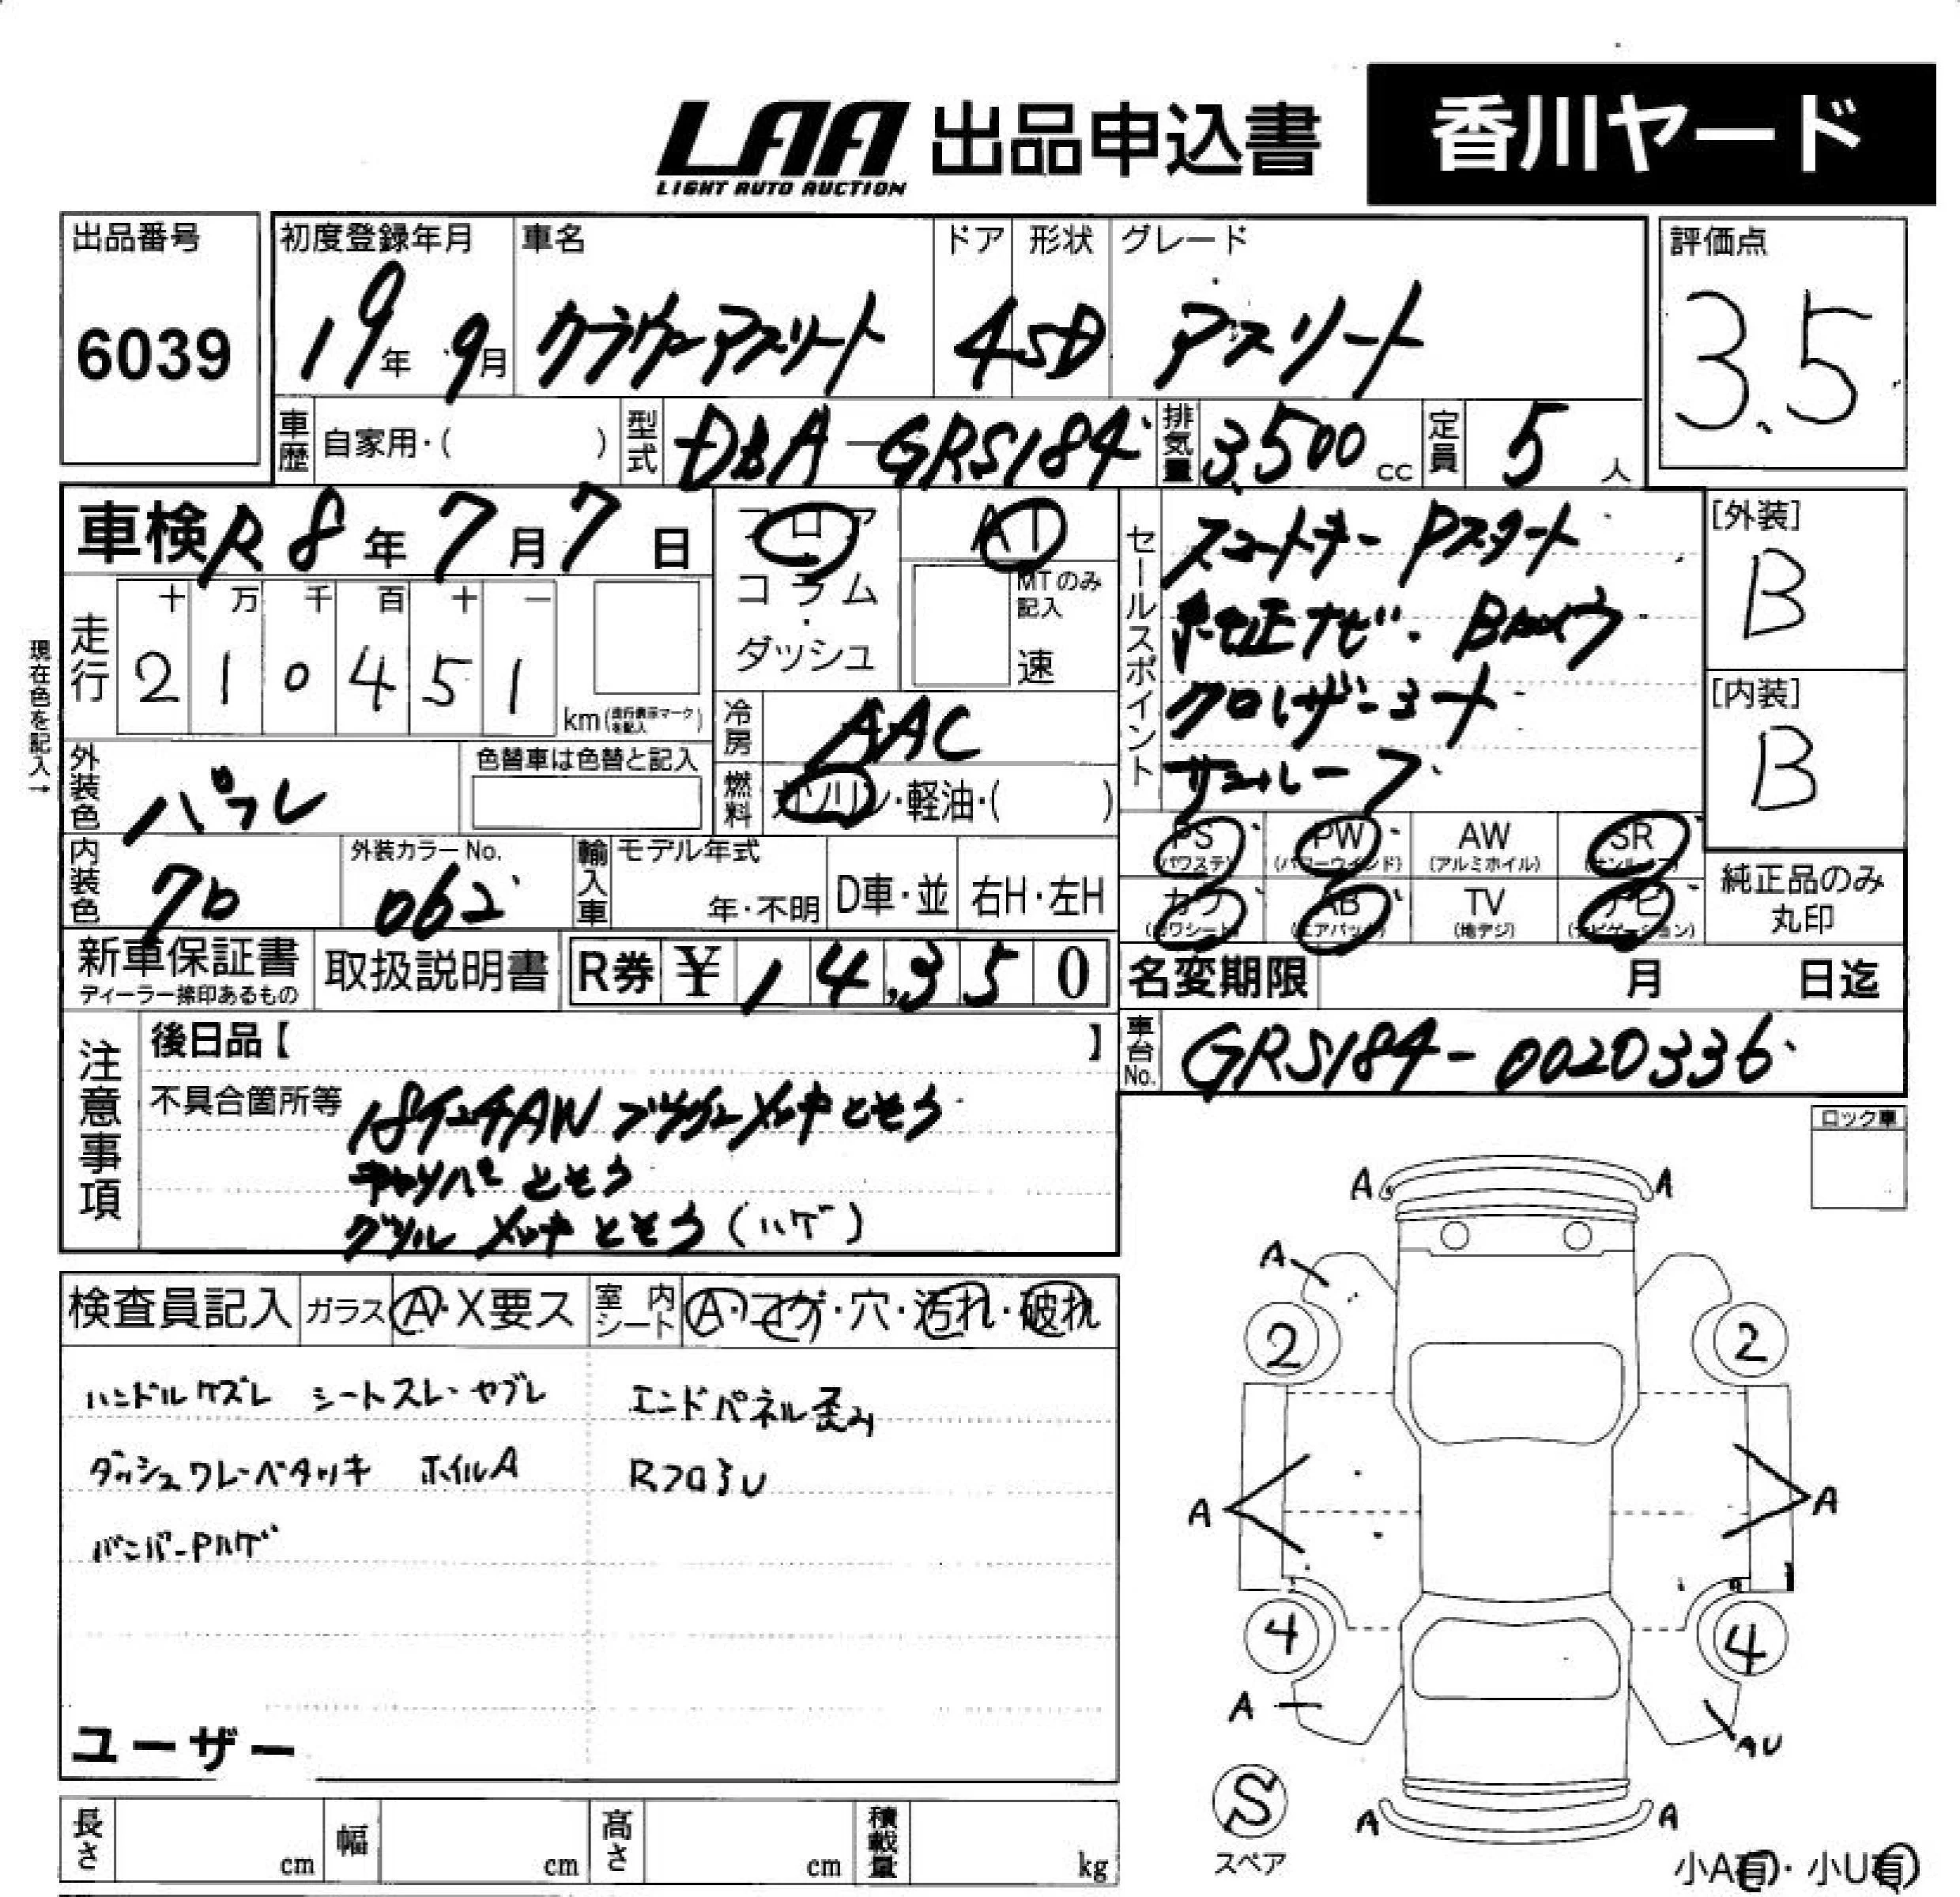 LAA 出品申込書 香川ヤード
LIGHT AUTO AUCTION
出品番号 初度登録年月 車名 ドア 形状 グレード 評価点
6039 19年 9月 クラウンアスリート 4 SD アスリート 3.5
車歴 自家用・( ) 型式 DBA-GRS184 排気量 3,500 cc 定員 5 人
車検 R8年 7月 7日
フロア・コラム・ダッシュ
AT
MTのみ記入
速
セールスポイント
スマートキー Pスタート
純正ナビ・Bカメラ
クルーザーコート
サンルーフ
[外装]
B
[内装]
B
現在色を記入→
走行 十 万 千 百 十 一
2 1 0 4 5 1 km(走行表示マークを記入)
冷房 AAC
外装色 パール
色替車は色替と記入
燃料 ガソリン・軽油・( )
内装色 クロ
外装カラーNo.
062
輸入車 モデル年式
年・不明 D車・並 右H・左H
PS (パワステ) PW (パワーウインド) AW (アルミホイル) SR (サンルーフ)
カワ (カワシート) AB (エアバック) TV (地デジ) ナビ (ナビゲーション)
純正品のみ
丸印
新車保証書
ディーラー捺印あるもの
取扱説明書 R券 ¥ 14,350
名変期限 月 日迄
車台No. GRS184-0020336
注意事項
後日品【 】
不具合箇所等 18インチAW ブラウンメッキとそう
キャリパーとそう
グリル メッキとそう(ハゲ)
ロック車
検査員記入 ガラス A・X要ス 室内シート A・コゲ・穴・汚れ・破れ
ハンドルケズレ シートスレ・ヤブレ エンドパネル歪み
ダッシュワレ・ベタツキ ホイルA RフロアU
バンパーPハゲ
ユーザー
A A
A
2 2
A A
4 4
A AU
S
スペア
A A
小A有・小U有
長さ cm 幅 cm 高さ cm 積載量 kg